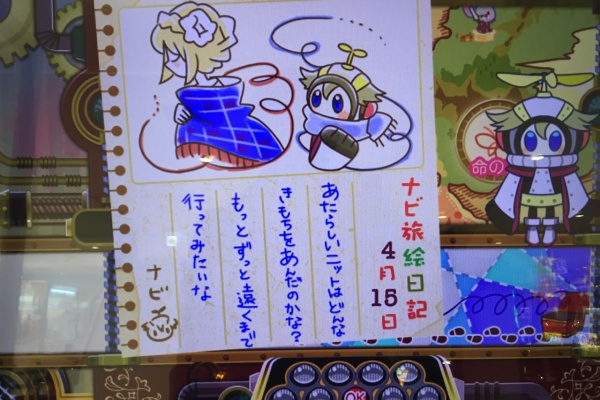 ナビ旅絵日記
4月15日
あたらしいニットはどんな
きもちをあんだのかな?
もっとずっと遠くまで
行ってみたいな
ナビ
命の
OK